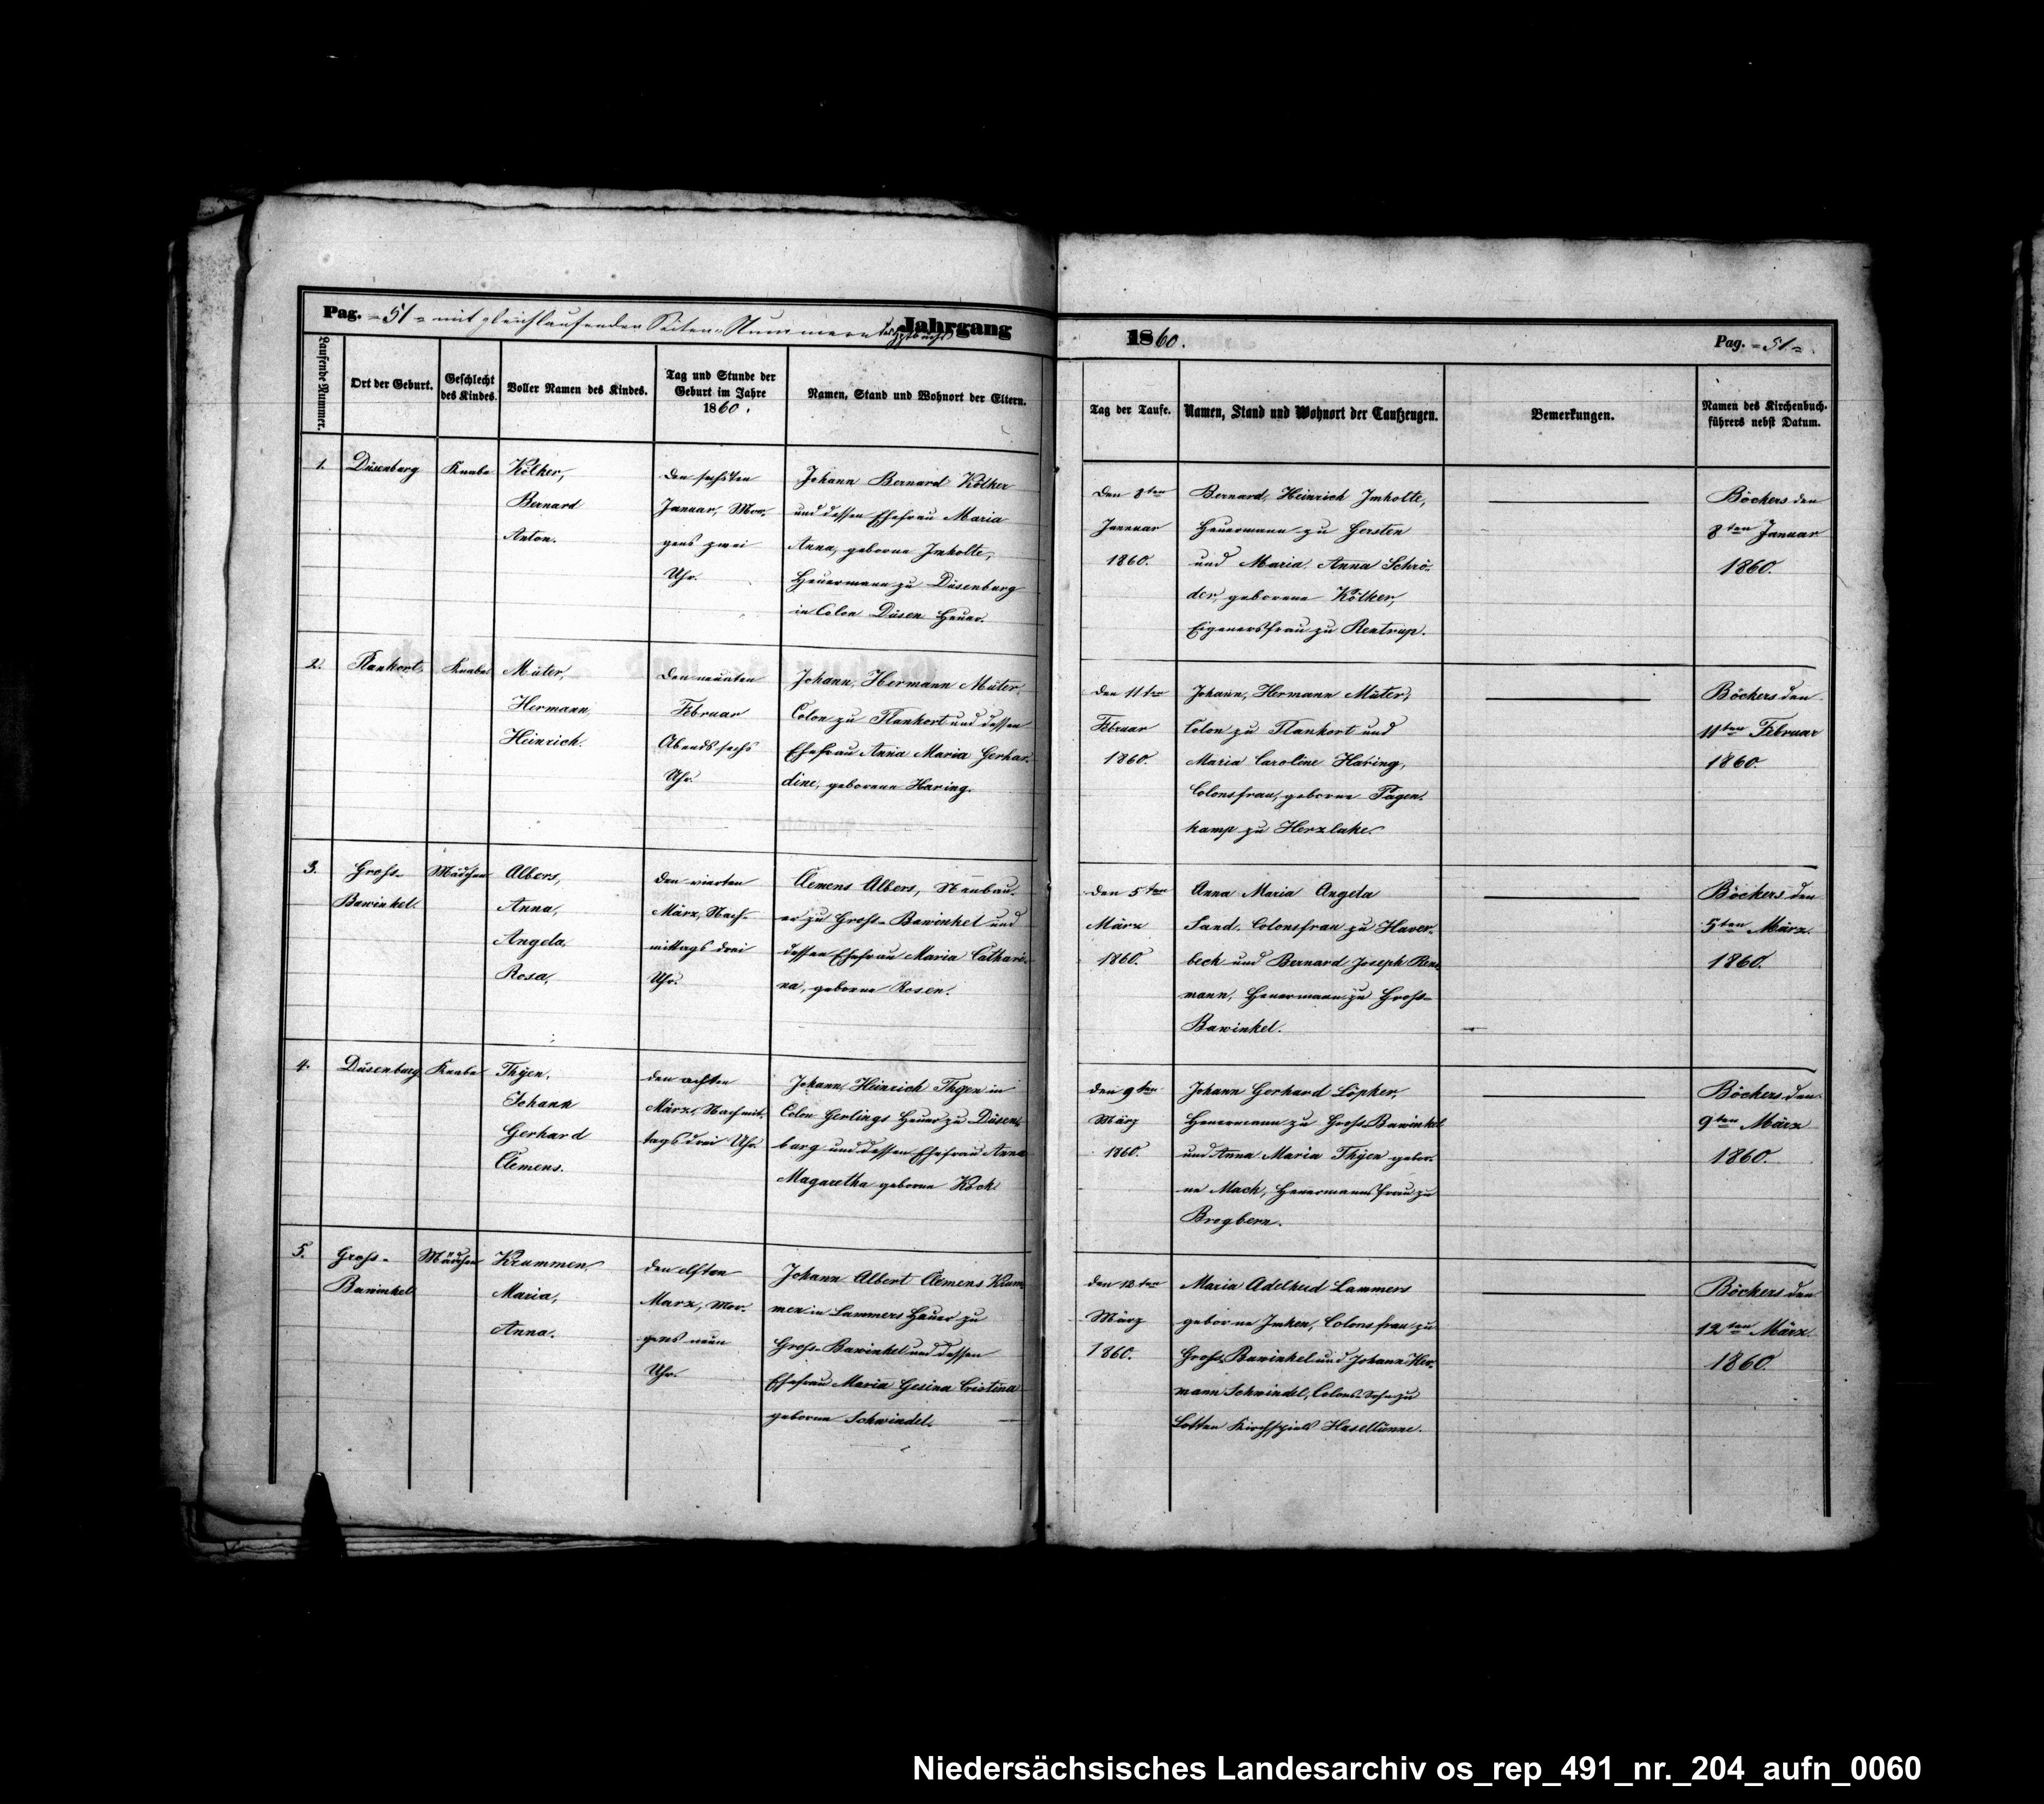 Pag. =51= mit gleichlaufenden Seiten-Nummern des Jahrgang
Laufende Nummer.
Ort der Geburt.
Geschlecht
des Kindes.
Voller Namen des Kindes.
Tag und Stunde der
Geburt im Jahre
1860.
Namen, Stand und Wohnort der Eltern.
1.
Düsenburg
Knabe
Kölker,
Bernard
Anton.
den sechsten
Januar, Mor-
gens zwei
Uhr.
Johann Bernard Kölker
und dessen Ehefrau Maria
Anna, geborne Imholte,
Heuermann zu Düsenburg
in Colon Düsen Heuer.
2.
Plankort
Knabe
Müter,
Hermann
Heinrich.
den neunten
Februar
Abends sechs
Uhr.
Johann Hermann Müter,
Colon zu Plankort und dessen
Ehefrau Anna Maria Gerhar-
dine, geborene Haring.
3.
Gross-
Bawinkel.
Mädchen
Albers,
Anna,
Angela,
Rosa,
den vierten
März, Nach-
mittags drei
Uhr.
Clemens Albers, Neubau-
er zu Gross-Bawinkel und
dessen Ehefrau Maria Cathari-
na, geborne Rosen.
4.
Düsenburg
Knabe
Thÿen,
Johann
Gerhard
Clemens.
den achten
März, Nachmit-
tags drei Uhr.
Johann Heinrich Thÿen in
Colon Gerlings Heuer zu Düsen-
burg und dessen Ehefrau Anna
Magaretha geborne Kock
5.
Gross-
Bawinkel
Mädchen
Krummen,
Maria,
Anna.
den elften
März, Mor-
gens neun
Uhr.
Johann Albert Clemens Krum-
men in Lammers Heuer zu
Gross-Bawinkel und dessen
Ehefrau Maria Gesina Cristina
geborne Schwindel.
1860.
Pag. =51=.
Tag der Taufe.
Namen, Stand und Wohnort der Taufzeugen.
Bemerkungen.
Namen des Kirchenbuch-
führers nebst Datum.
Den 8ten
Januar
1860.
Bernard Heinrich Imholte,
Heuermann zu Gersten
und Maria Anna Schrö-
der, geborene Kölker,
Eigenersfrau zu Rentrup.
Böckers den
8ten Januar
1860.
den 11ten
Februar
1860.
Johann, Hermann Müter,
Colon zu Plankort und
Maria Caroline Haring,
Colonsfrau, geborne Pagen-
kamp zu Herzlake.
Böckers den
11ten Februar
1860.
den 5ten
März
1860.
Anna Maria Angela
Sand, Colonsfrau zu Haver-
beck und Bernard Joseph
mann, Heuermann zu Gross-
Bawinkel.
Böckers den
5ten März
1860.
den 9ten
März
1860.
Johann Gerhard Löpker,
Heuermann zu Gross-Bawinkel
und Anna Maria Thÿen gebor-
ne Mach, Heuermannsfrau zu
Brogbern.
Böckers den
9ten März
1860.
den 12ten
März
1860.
Maria Adelheid Lammers
geborne Imken, Colonsfrau zu
Gross-Bawinkel und Johann Her-
mann Schwindel, Colons Sohn zu
Lotten Kirchspiels Haselünne.
Böckers den
12ten März
1860.
Niedersächsisches Landesarchiv os_rep_491_nr._204_aufn_0060